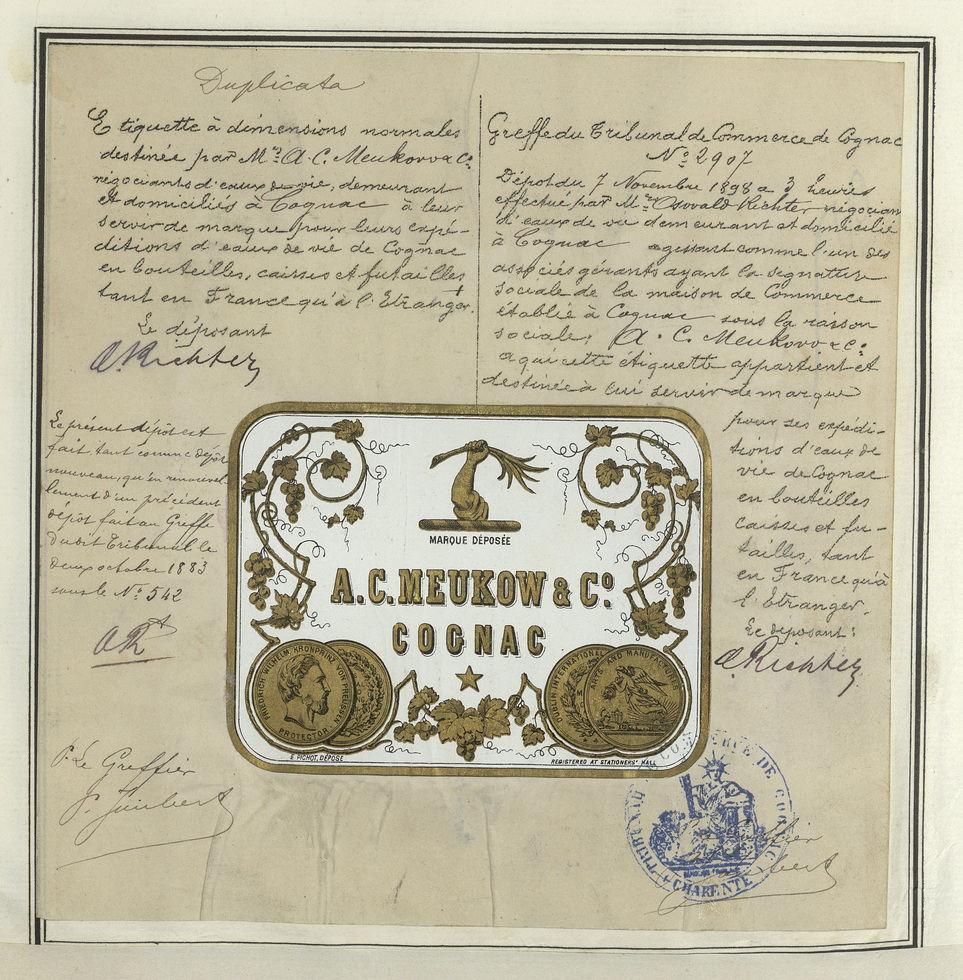 Duplicata
Etiquette à dimensions normales
destinée par Mrs A. C. Meukow & Co
négociants d'eaux de vie, demeurant
et domiciliés à Cognac à leur
servir de marque pour leurs expé-
ditions d'eaux de vie de Cognac
en bouteilles, caisses et futailles
tant en France qu'à l'Etranger.
Le déposant
O. Richter
Le présent dépôt est
fait tant comme dépôt
nouveau, qu'en renouvel
lement d'un précédent
dépôt fait au Greffe
dudit Tribunal le
deux octobre 1883
sous le No 542
ORt
P. Le Greffier
Greffe du Tribunal de Commerce de Cognac
No 2907
Dépôt du 7 Novembre 1898 a 3 heures
effectué par Mr Oswald Richter négociant
d'eaux de vie demeurant et domicilié
à Cognac agissant comme l'un des
associés gérants ayant la signature
sociale de la maison de Commerce
établie à Cognac sous la raison
sociale, A. C. Meukow & Co
a qui cette étiquette appartient et
destinée à lui servir de marque
pour ses expédi-
tions d'eaux de
vie de Cognac
en bouteilles
caisses et fu-
tailles, tant
en France qu'à
l'Etranger.
Le déposant :
O. Richter
MARQUE DÉPOSÉE
A.C. MEUKOW & Co.
COGNAC
FRIEDRICH WILHELM KRONPRINZ VON PREUSSEN
PROTECTOR
DUBLIN INTERNATIONAL
ARTS AND MANUFACTURES
E. PICHOT, DÉPOSÉ
REGISTERED AT STATIONERS' HALL
TRIBUNAL DE COMMERCE DE COGNAC
CHARENTE